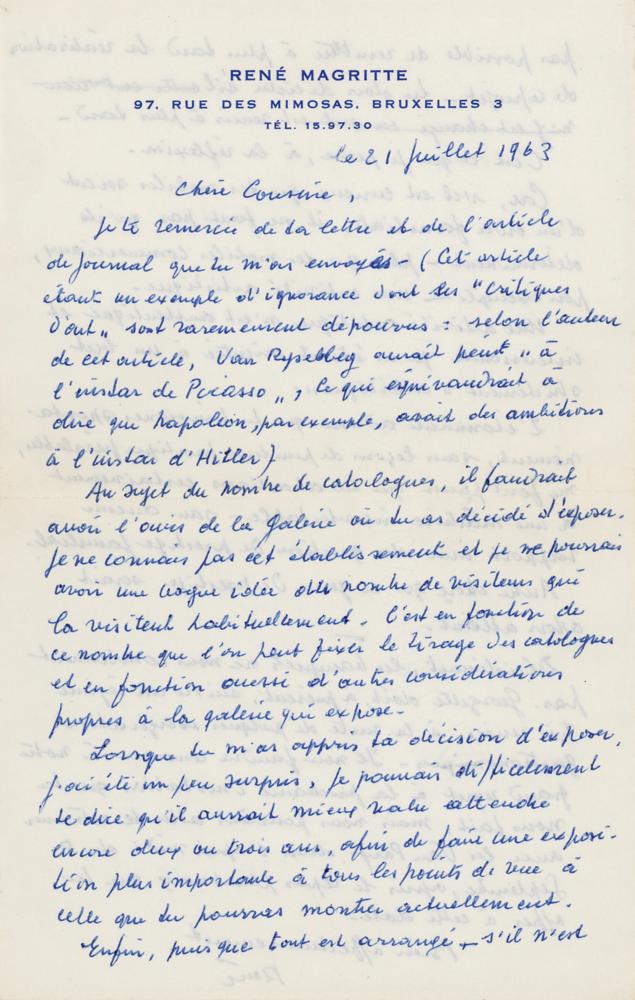 RENÉ MAGRITTE
97, RUE DES MIMOSAS, BRUXELLES 3
TÉL. 15.97.30
le 21 Juillet 1963
Chère Cousine,
Je te remercie de ta lettre et de l'article
de journal que tu m'as envoyés - (Cet article
étant un exemple d'ignorance dont les "Critiques
d'art" sont rarement dépourvus : selon l'auteur
de cet article, Van Rysselberg aurait peint "à
l'instar de Picasso", ce qui équivaudrait à
dire que Napoléon, par exemple, avait des ambitions
à l'instar d'Hitler)
Au sujet du nombre de catalogues, il faudrait
avoir l'avis de la galerie où tu as décidé d'exposer.
Je ne connais pas cet établissement et je ne pourrais
avoir une vague idée du nombre de visiteurs qui
la visitent habituellement. C'est en fonction de
ce nombre que l'on peut fixer le tirage des catalogues
et en fonction aussi d'autres considérations
propres à la galerie qui expose.
Lorsque tu m'as appris ta décision d'exposer,
j'ai été un peu surpris, je pouvais difficilement
te dire qu'il aurait mieux valu attendre
encore deux ou trois ans, afin de faire une exposi-
tion plus importante à tous les points de vue à
celle que tu pourras montrer actuellement.
Enfin, puisque tout est arrangé - s'il n'est